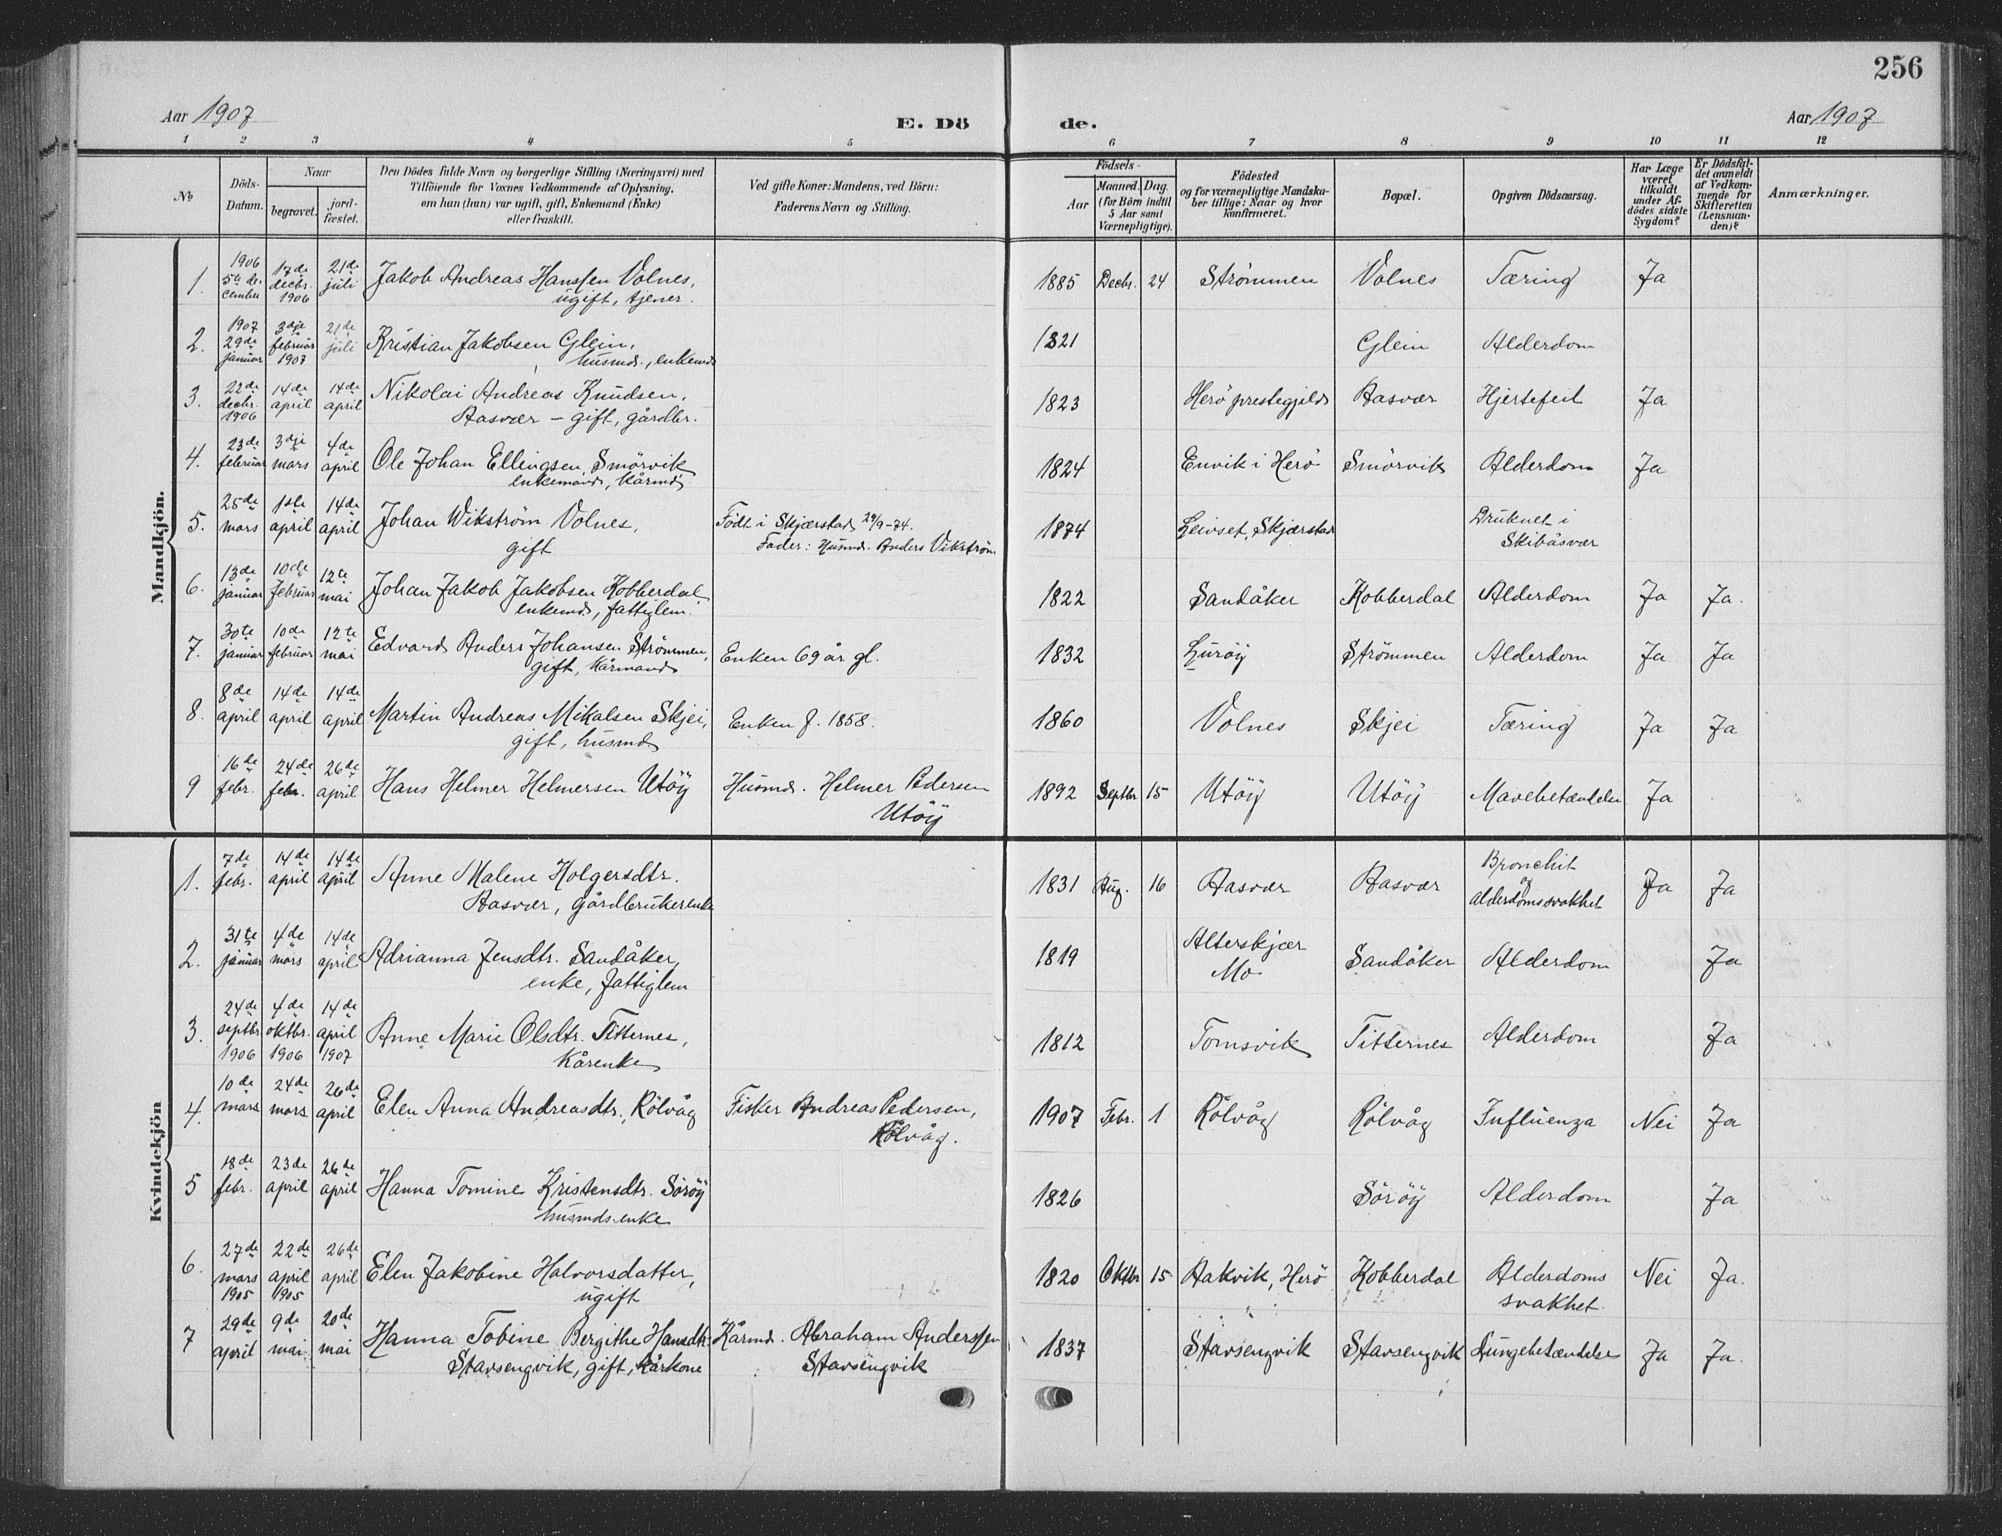 256
Aar 1907
E. Dö de.
Aar 1907
1 2 3 4 5 6 7 8 9 10 11 12
No
Döds-Datum.
Naar
begravet.
jord-fæstet.
Den Dödes fulde Navn og borgerlige Stilling (Næringsvei) med
Tilföiende for Voxnes Vedkommende af Oplysning,
om han (hun) var ugift, gift, Enkemand (Enke)
eller fraskilt.
Ved gifte Koner: Mandens, ved Börn:
Faderens Navn og Stilling.
Födsels-
Aar
Maaned. Dag.
(for Börn indtil
5 Aar samt
Værnepligtige).
Födested
og for værnepligtige Mandska-
ber tillige: Naar og hvor
konfirmeret.
Bopæl.
Opgiven Dödsaarsag.
Har Læge
været
tilkaldt
under Af-
dödes sidste
Sygdom?
Er Dödsfal-
det anmeldt
af Vedkom-
mende for
Skifteretten
(Lensman-
den)?
Anmærkninger.
Mandkjön.
1. 1906 5te december 17de decbr. 1906 21de juli Jakob Andreas Hanssen Volnes, 1885 Decbr. 24 Strömmen Volnes Tæring Ja
ugift, tjener.
2. 1907 29de januar 3dje februar 1907 21de juli Kristian Jakobsen Glein, 1821 Glein Alderdom
husmd., enkemd
3. 22de decbr. 1906 14de april 14de april Nikolai Andreas Knudsen, 1823 Herö prestegjeld Aasvær Hjertefeil Ja
Aasvær - gift, gårdbr.
4. 23de februar 3dje mars 4de april Ole Johan Ellingsen, Smörvik 1824 Envik i Herö Smörvik Alderdom Ja
enkemand, kårmd.
5. 25de mars 1ste april 14de april Johan Wikström Volnes, Född i Skjærstad 29/9-74. 1874 Leivset, Skjærstad Druknet i
gift Fader: Husmd. Anders Vikström Skibåsvær
6. 13de januar 10de februar 12te mai Johan Jakob Jakobsen Kobberdal 1822 Sandåker Kobberdal Alderdom Ja Ja.
enkemd, fattiglem.
7. 30te januar 10de februar 12te mai Edvard Anders Johansen Strömmen, Enken 69 år gl. 1832 Luröy Strömmen Alderdom Ja Ja
gift, kårmand
8. 8de april 14de april 14de april Martin Andreas Mikalsen Skjei, Enken f. 1858. 1860 Volnes Skjei Tæring Ja Ja
gift, husmd
9 16de febr. 24de febr. 26de april Hans Helmer Helmersen Utöy Husmd. Helmer Pedersen 1892 Septbr 15 Utöy Utöy Mavebetændelse Ja
Utöy
Kvindekjön
1. 7de febr. 14de april 14de april Anne Malene Holgersdtr. 1831 Aug. 16 Aasvær Aasvær Bronchit og Ja Ja
Aasvær, gårdbrukerenke alderdomssvakhet
2. 31te januar 4de mars 14de april Adrianna Jensdtr. Sandåker, 1819 Alterskjær Sandåker Alderdom Ja
enke, fattiglem Mo
3. 24de septbr. 1906 4de oktbr. 1906 14de april 1907 Anne Marie Olsdtr. Titternes, 1812 Tomsvik Titternes Alderdom Ja
Kårenke
4. 10de mars 24de mars 26de april Elen Anna Andreasdtr, Rölvåg Fisker Andreas Pedersen, 1907 Febr. 1 Rölvåg Rölvåg Influenza Nei Ja
Rölvåg.
5 18de febr. 23de april 26de april Hanna Tomine Kristensdtr. Söröy 1826 Söröy Alderdom Ja
husmds.enke
6. 27de mars 1905 22de april 1905 26de april Elen Jakobine Halvorsdatter, 1820 Oktbr 15 Aakvik, Herö Kobberdal Alderdoms Nei Ja.
ugift svakhet.
7 29de april 9de mai 20de mai Hanna Tobine Bergithe Hansdtr. Kårmd. Abraham Anderssen 1837 Stavsengvik Stavsengvik Lungebetændelse Ja Ja.
Stavsengvik, gift, kårkone Stavsengvik